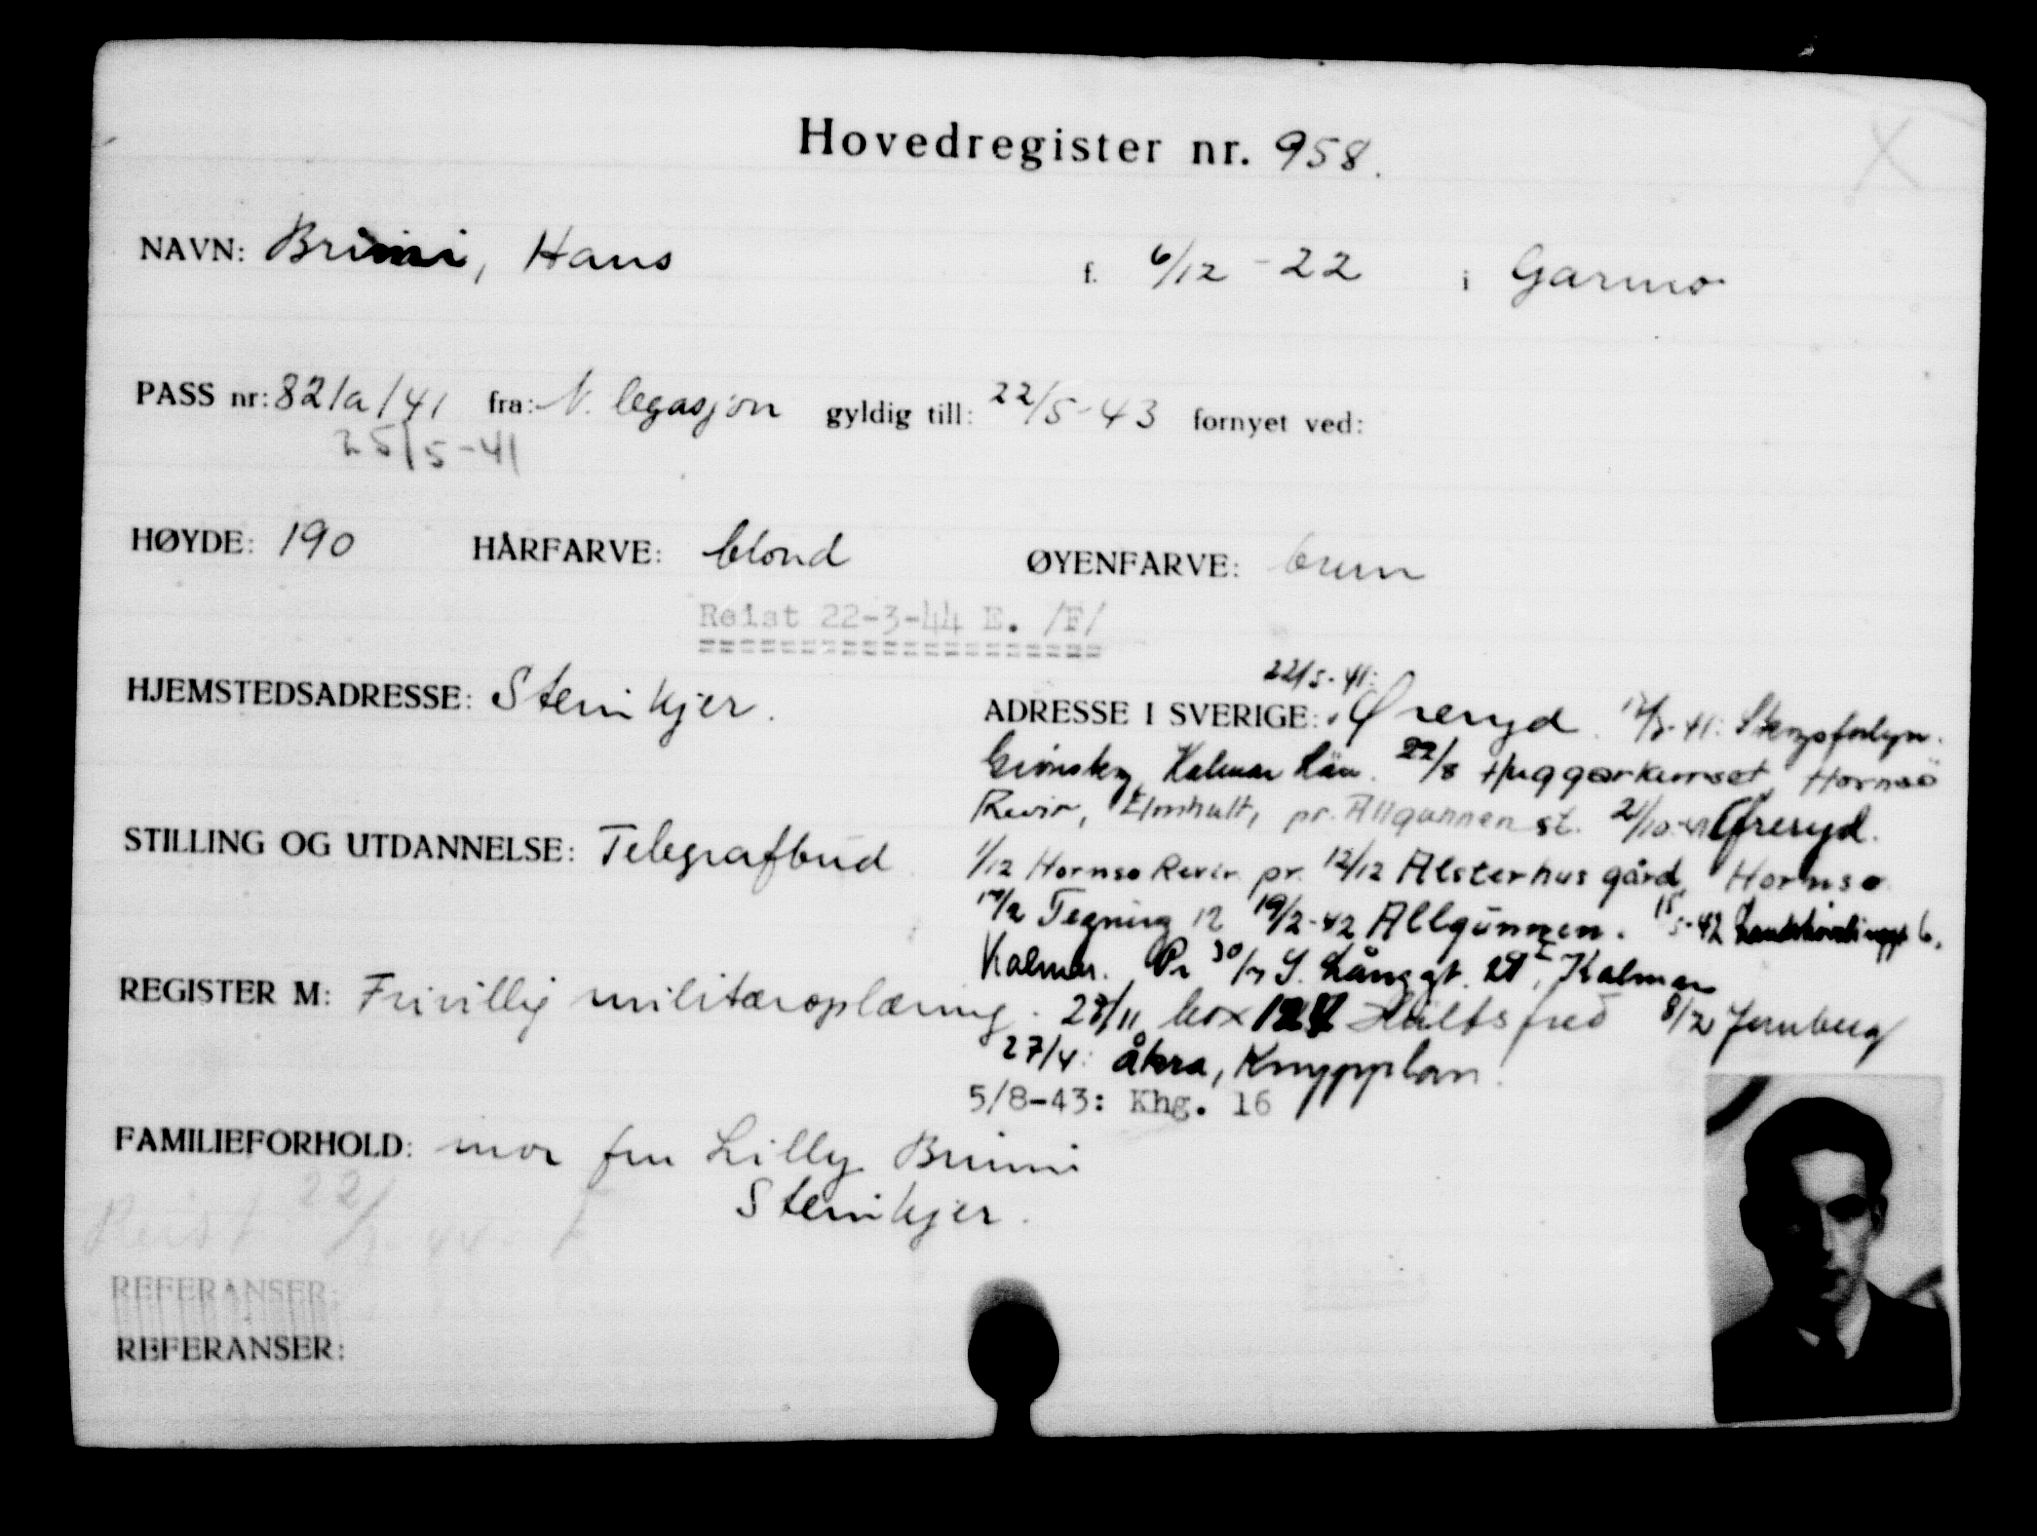 Hovedregister nr. 958.
NAVN: Brimi, Hans f. 6/12 - 22 i Garmo
PASS nr: 82/a/41 fra: N. legasjon gyldig till: 22/5-43 fornyet ved:
25/5-41
HØYDE: 190 HÅRFARVE: blond ØYENFARVE: brun
Reist 22-3-44 E. /F/
22/5-41:
HJEMSTEDSADRESSE: Steinkjer. ADRESSE I SVERIGE: Øreryd.
Kalmar Län. 22/8 Huggarkurset, Hornsö
Revir, Elmhult, pr. Allgunnen st. 2/10-41 Øreryd.
STILLING OG UTDANNELSE: Telegrafbud
1/12 Hornsö Revir pr. 12/12 Alsterhus gård, Hornsö
Tegning 12 19/2-42 Allgunnen.
Kalmar. Pr 30/7 S. Långgt. Kalmar
REGISTER M: Frivillig militæroplæring. box Hultsfred 8/2 Jernberg
27/4: Åkra, Knypplan.
5/8-43: Khg. 16
FAMILIEFORHOLD: mor fru Lilly Brimi
Steinkjer.
Reist 22/3-44 F
REFERANSER:
REFERANSER: